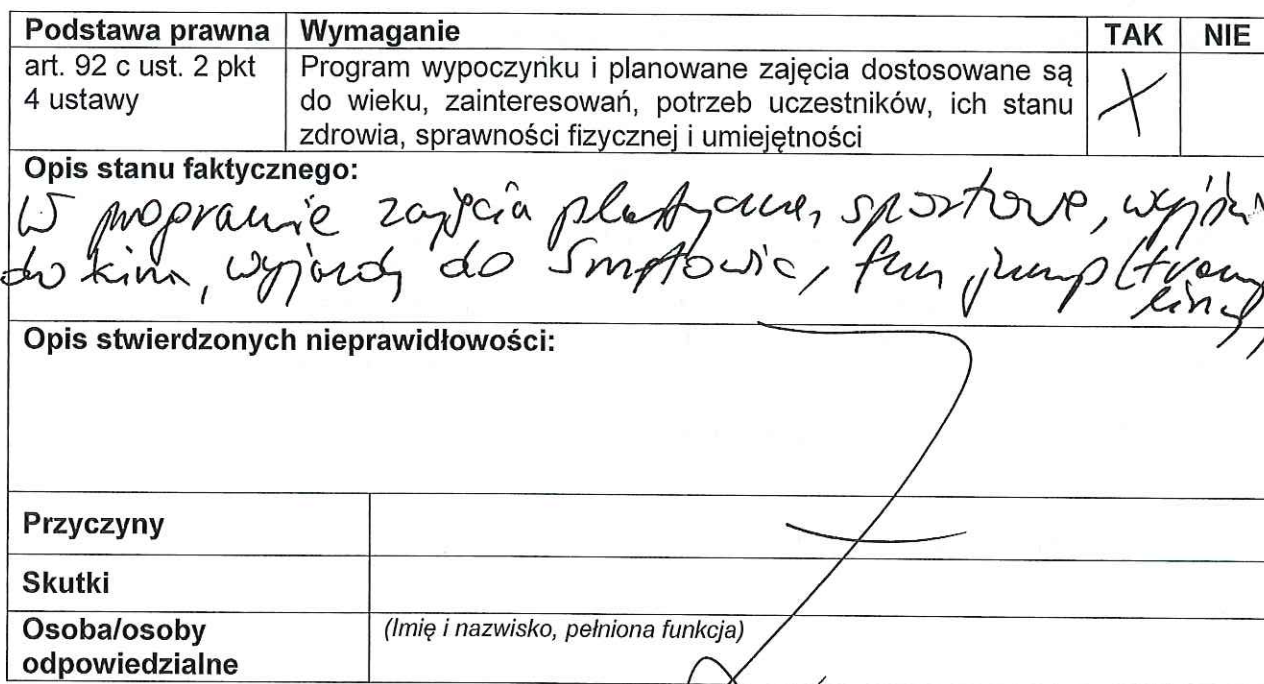 Podstawa prawna Wymaganie TAK NIE
art. 92 c ust. 2 pkt 4 ustawy
Program wypoczynku i planowane zajęcia dostosowane są
do wieku, zainteresowań, potrzeb uczestników, ich stanu
zdrowia, sprawności fizycznej i umiejętności
X
Opis stanu faktycznego:
W programie zajęcia plastyczne, sportowe,
do kina, wyjazdy do fun jump (trampoliny)
Opis stwierdzonych nieprawidłowości:
Przyczyny
Skutki
Osoba/osoby odpowiedzialne
(Imię i nazwisko, pełniona funkcja)